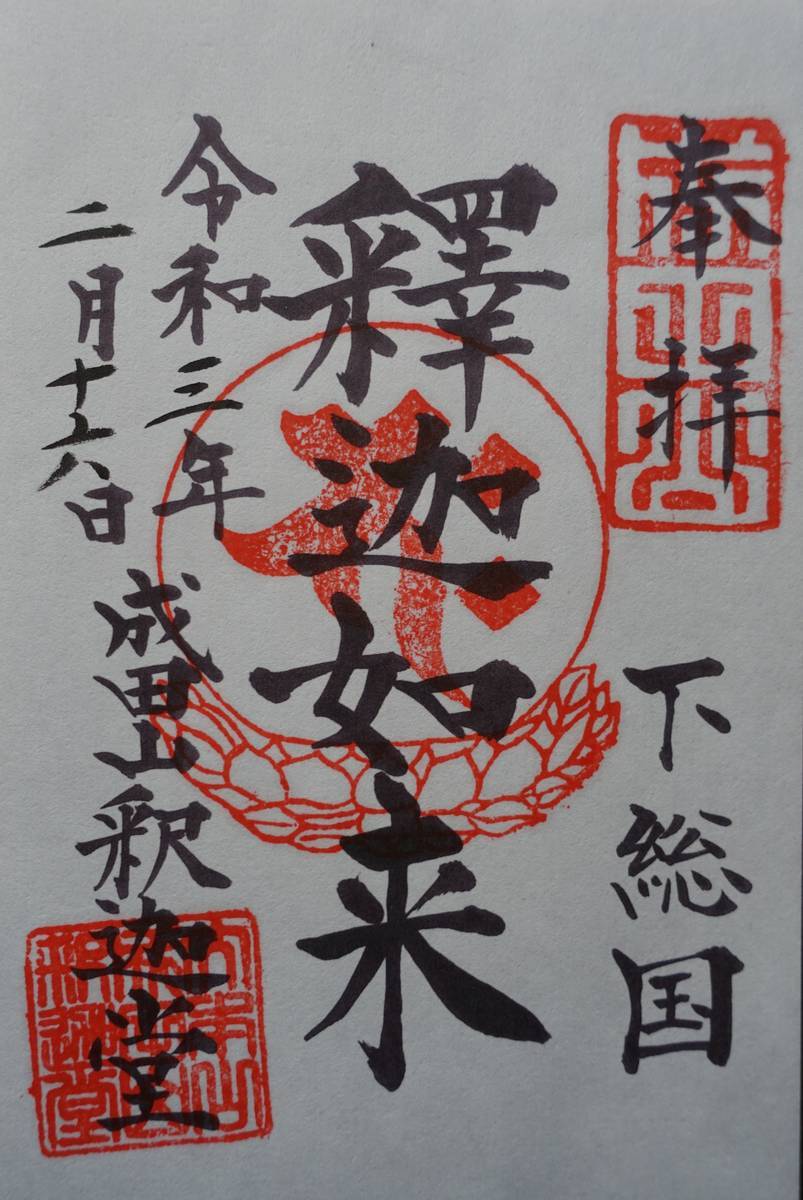 奉拝
下総国
釋迦如来
令和三年
二月十六日
成田山釈迦堂